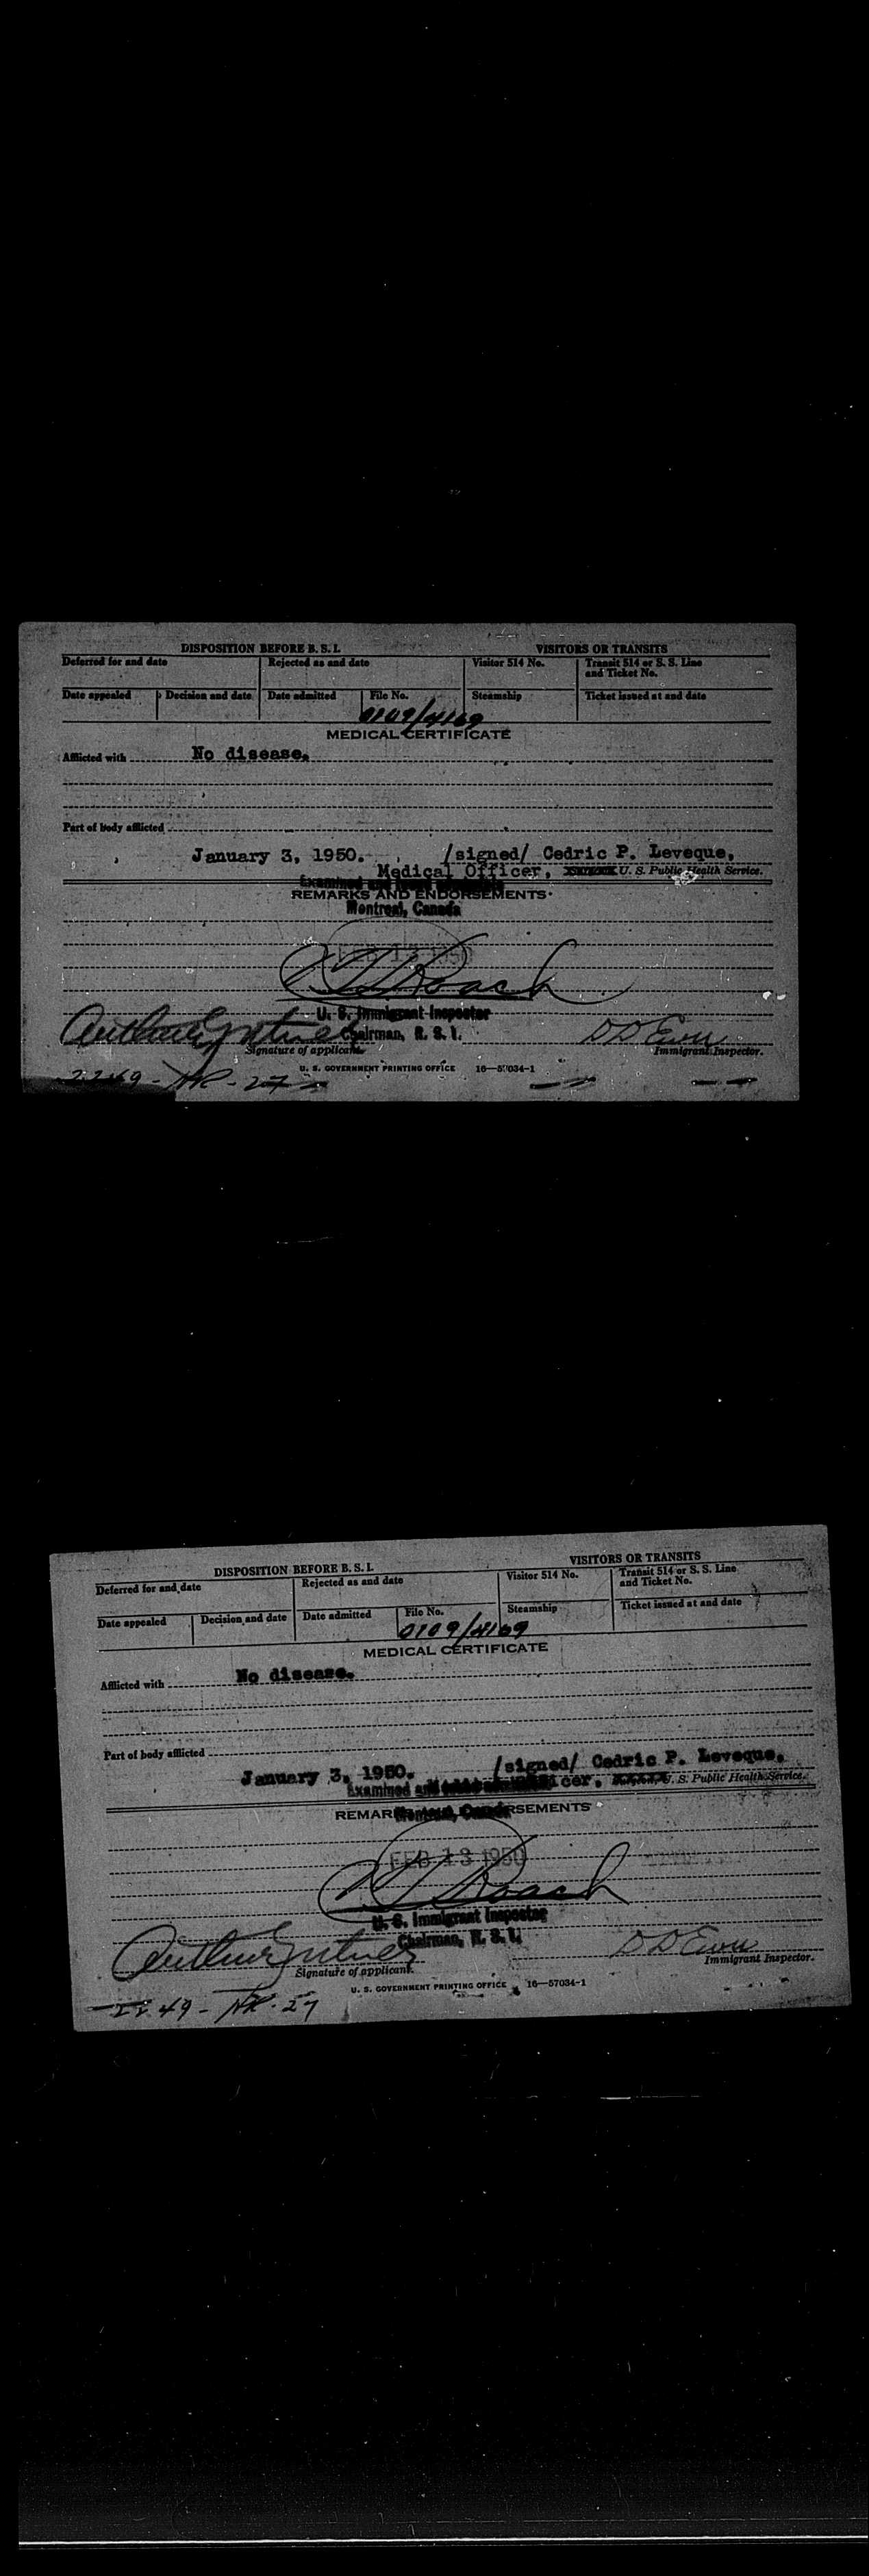 DISPOSITION BEFORE B. S. I. VISITORS OR TRANSITS
Deferred for and date Rejected as and date Visitor 514 No. Transit 514 or S. S. Line and Ticket No.
Date appealed Decision and date Date admitted File No. Steamship Ticket issued at and date
0109/4169
MEDICAL CERTIFICATE
Afflicted with No disease.
Part of body afflicted
January 3, 1950. /signed/ Cedric P. Leveque,
Medical Officer, U. S. Public Health Service.
Examined and
REMARKS AND ENDORSEMENTS
Montreal, Canada
FEB 13 1950
Roach
U. S. Immigrant Inspector
Arthur Chairman, B. S. I. D D
Signature of applicant. Immigrant Inspector.
U. S. GOVERNMENT PRINTING OFFICE 16—57034-1
2249 - - 27
DISPOSITION BEFORE B. S. I. VISITORS OR TRANSITS
Deferred for and date Rejected as and date Visitor 514 No. Transit 514 or S. S. Line and Ticket No.
Date appealed Decision and date Date admitted File No. Steamship Ticket issued at and date
0109/4169
MEDICAL CERTIFICATE
Afflicted with No disease.
Part of body afflicted
January 3, 1950. /signed/ Cedric P. Leveque,
Examined and Officer, U. S. Public Health Service.
REMARKS AND ENDORSEMENTS
Montreal, Canada
FEB 13 1950
Roach
U. S. Immigrant Inspector
Arthur Chairman, B. S. I. D D
Signature of applicant. Immigrant Inspector.
U. S. GOVERNMENT PRINTING OFFICE 16—57034-1
2249 - - 27